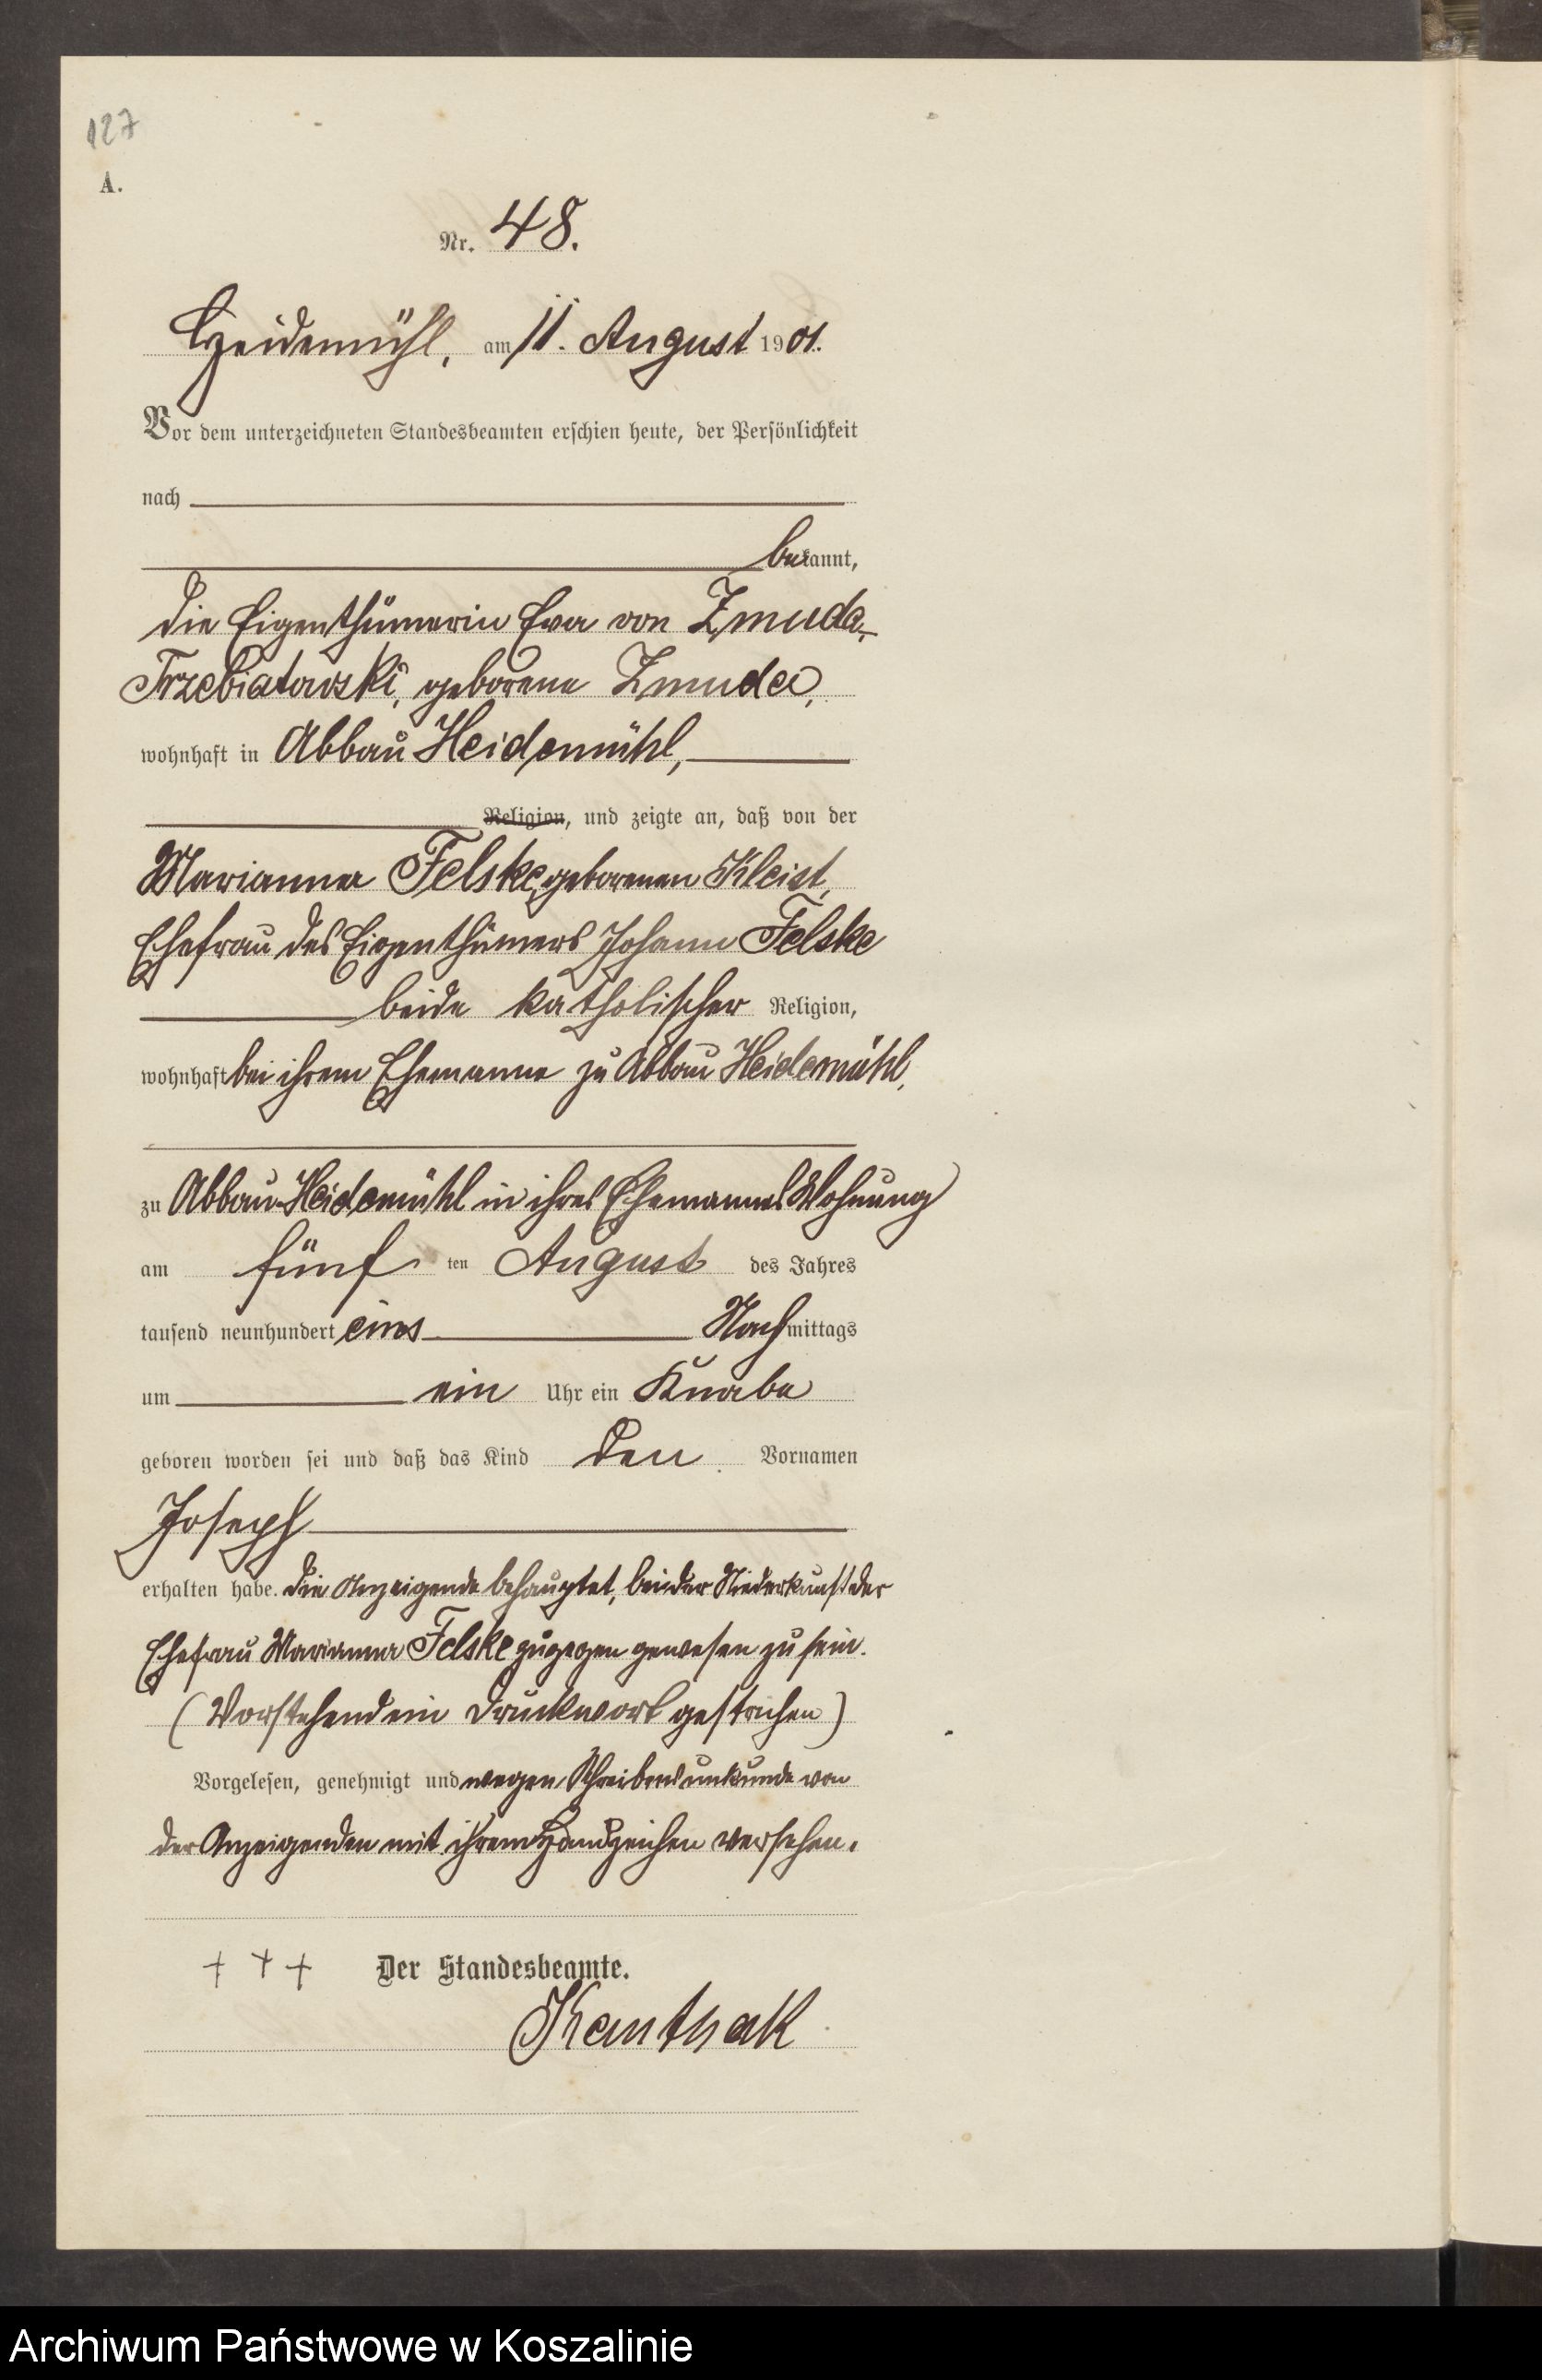 127
A.
Nr. 48.
Heidemühl, am 11. August 1901.
Vor dem unterzeichneten Standesbeamten erschien heute, der Persönlichkeit
nach
bekannt,
die Eigenthümerin Eva von Zmuda-
Trzebiatowski, geborene Zmuda,
wohnhaft in Abbau Heidemühl,
Religion, und zeigte an, daß von der
Marianna Felske, geborenen Kleist,
Ehefrau des Eigenthümers Johann Felske
beide katholischer Religion,
wohnhaft bei ihrem Ehemanne zu Abbau Heidemühl,
zu Abbau-Heidemühl in ihres Ehemannes Wohnung
am fünf ten August des Jahres
tausend neunhundert eins Nachmittags
um ein Uhr ein Knabe
geboren worden sei und daß das Kind den Vornamen
Joseph
erhalten habe. Die Anzeigende behauptet, bei der Niederkunft der
Ehefrau Marianna Felske zugegen gewesen zu sein.
(Vorstehend ein Druckwort gestrichen)
Vorgelesen, genehmigt und wegen Schreibensunkunde von
der Anzeigenden mit ihrem Handzeichen versehen.
+ + + Der Standesbeamte.
Kanthak
Archiwum Państwowe w Koszalinie